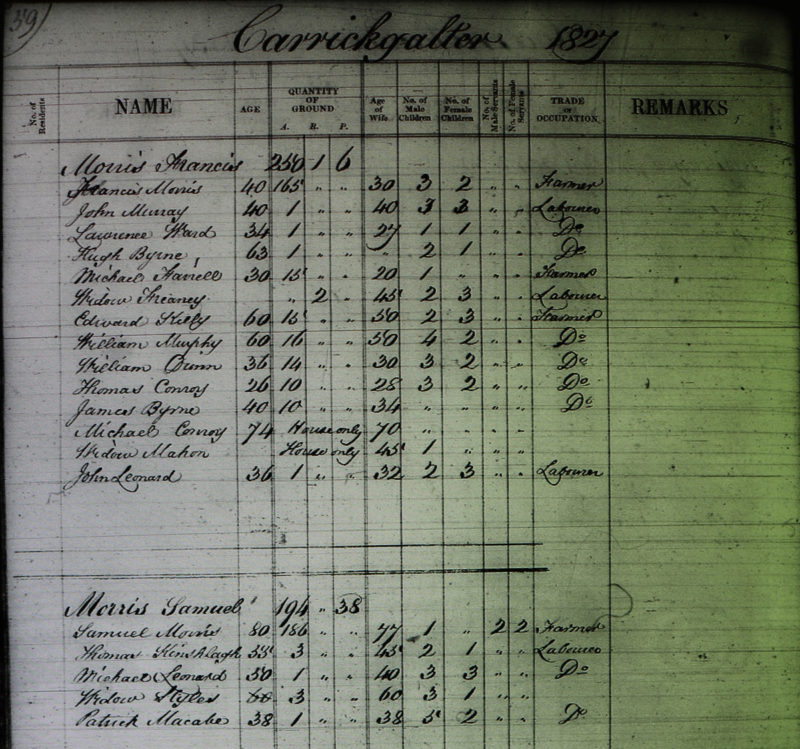 59)
Carrickgalter 1827
No. of Residents NAME AGE QUANTITY OF GROUND A. R. P. Age of Wife No. of Male Children No. of Female Children No. of Male Servants No. of Female Servants TRADE or OCCUPATION REMARKS
Morris Francis 250 1 6
Francis Morris 40 165 " " 30 3 2 " " Farmer
John Murray 40 1 " " 40 3 3 " " Labourer
Lawrence Ward 34 1 " " 27 1 1 " " Do
Hugh Byrne 63 1 " " " 2 1 " " Do
Michael Farrell 30 15 " " 20 1 " " " Farmer
Widow Freaney " 2 " 45 2 3 " " Labourer
Edward 60 15 " " 50 2 3 " " Farmer
William Murphy 60 16 " " 50 4 2 " " Do
William Dunn 36 14 " " 30 3 2 " " Do
Thomas Conroy 26 10 " " 28 3 2 " " Do
James Byrne 40 10 " " 34 " " " " Do
Michael Conroy 74 House only 70 " " " "
Widow Mahon House only 45 1 " " "
John Leonard 36 1 " " 32 2 3 " " Labourer
Morris Samuel 194 " 38
Samuel Morris 80 186 " " 77 1 " 2 2 Farmer
Thomas Hinshlagh 55 3 " " 45 2 1 " " Labourer
Michael Leonard 50 1 " " 40 3 3 " " Do
Widow Styles 60 3 " " 60 3 1 " "
Patrick Macabe 38 1 " " 38 5 2 " " Do